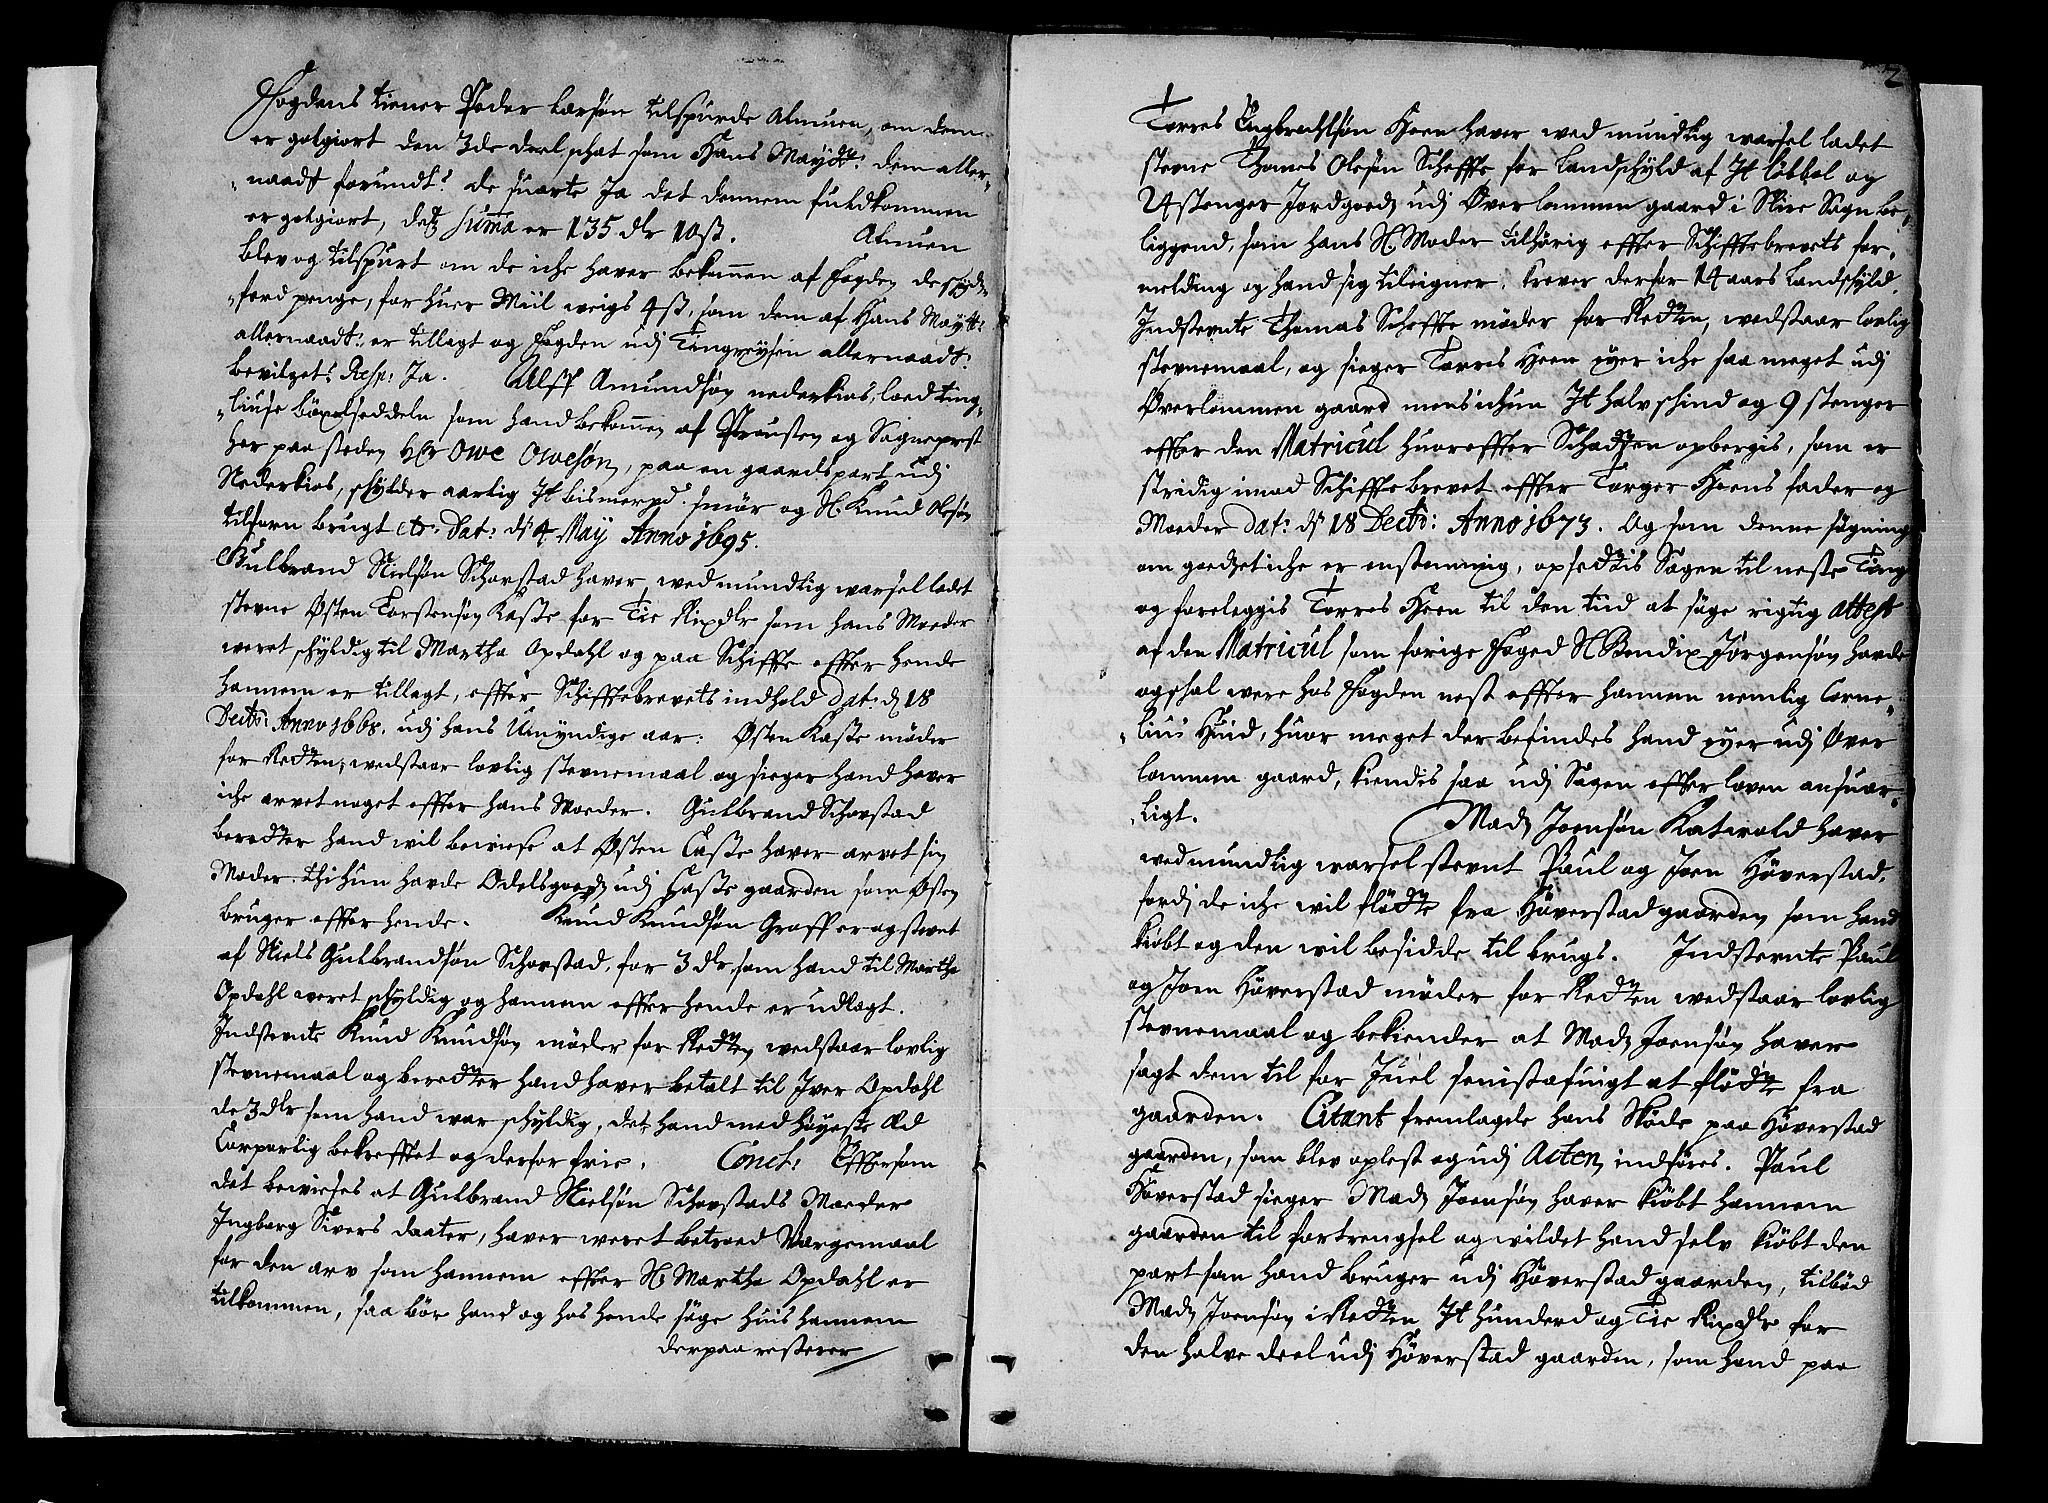 Fogdens tiener Peder Larsøn tilspurde Almuen, om dem
er gotgiort den 3de deel schat som Hans Maÿtt: dem aller„
„naadt forundt? de suarte Ja det dennem fuldkommen
er gotgiort, dets Suma er 135 dlr 10 ß. Almuen
blev og tilspurt om de iche haver bekommen af Fogden de schyds„
„ferd penge, for huer Miil weigs 4 ß, som dem af Hans Maÿtt:
allernaadt: er tillagt og Fogden udj Tingreÿsen allernaadt:
bevilget? Resp: Ja. Alff Amundsøn nederkios, loed ting„
„liuse böxelseddelen som hand bekommen af Prousten og Sogneprest
her paa steden Hr Owe Owesön, paa en gaardspart udj
Nederkios, schylder aarlig It bismerpd: smör og Sl. Knud Olesøn
tilforn brugt etc: Dat: d: 4 Maÿ Anno 1695.
Gulbrand Nielsøn Schovstad haver med mundtlig warsel ladet
stevne Østen Torstensøn Kaste for Tie Rixdlr som hans Moeder
weret schyldig til Martha Opdahl og paa Schiffte effter hende
hannem er tillagt, effter Schifftebrevets indhold Dat: d: 18
Decbr: Anno 1668. udj hans Umyndige aar: Østen Kaste møder
for Retten, wedstaar lovlig stevnemaal og sieger hand haver
iche arvet noget effter hans Moeder. Gulbrand Schovstad
beretter hand wil bewiese at Østen Caste haver arvet sin
Moder. thi hun havde Odelsgoeds udj Caste gaarden som Østen
bruger effter hende. Knud Knudsøn Graff er og stevnt
af Niels Gulbrandsøn Schovstad, for 3 dlr, som hand til Martha
Opdahl weret schyldig og hannem effter hende er udlagt.
Indstevnte Knud Knudsøn møder for Retten, wedstaar lovlig
stevnemaal og beretter hand haver betalt til Iver Opdahl
de 3 dlr som hand war schyldig, det hand med høyeste Æd
Corporlig bekrefftet og derfor frie. Concl: Effersom
det bewieses at Gulbrand Nielsøn Schovstads Moeder
Ingborg Sivers daater, haver weret betroed Wærgemaal
for den arv som hannem effter Sl: Martha Opdahl er
tilkommen, saa bör hand og hos hende söge huis hannem
derpaa resterer
2
Torres Engbrechtsøn Hoen haver wed mundtlig warsel ladet
stevne Thomes Olesøn Scheffte for Landschyld af It löbbel og
24 stenger Jordgoeds udj Øverlommen gaard i Slire Sogn be„
liggend, som hans Sl. Moder tilhörig effter Schifftebrevets for„
melding og hand sig tileigner, krever derfor 14 aars Landschyld.
Indstevnte Thomas Scheffte møder for Retten, wedstaar lovlig
stevnemaal, og sieger Torris Hoen eyer iche saa meget udj
Øverlommen gaard mens ichun It halv schind og 9 stenger
effter den Matricul huoreffter Schatten opbergis, som er
stridig imod Schifftebrevet effter Torger Hoens fader og
Moeder dat: d: 18 Decbr: Anno 1673. Og som denne søgning
om goedzet iche er enstemmig, opsettis Sagen til neste Ting
og foreleggis Torres Hoen til den tiid at søge rigtig attest
af den Matricul som forige Foged Sl Bendix Jørgensøn havde
og schal were hos Fogden nest effter hannem nemlig Corne„
„lius Hiud, huor meget der befindes hand eyer udj Øver
lommen gaard, kiendis saa udj Sagen effter loven ansuar„
„ligt. Mads Joensøn Katwold haver
wed mundtlig warsel stevnt Paul og Joen Höverstad,
fordj de iche wil flötte fra Höverstad gaarden som hand
kiöbt og den wil besidde til brugs. Indstevnte Paul
og Joen Höverstad møder for Retten wedstaar lovlig
stevnemaal og bekiender at Mads Joensøn haver
sagt dem til for Juel senistafuigt at flötte fra
gaarden. Citant fremlagde hans Skiöde paa Höverstad
gaarden, som blev oplest og udj Acten indföres. Paul
Höverstad sieger Mads Joensøn haver kiöbt hannem
gaarden til fortrengsel og wildet hand selv kiöbt den
part som hand bruger udj Höverstad gaarden, tilböd
Mads Joensøn i Retten It hunderd og Tie Rixdlr for
den halve deel udj Höverstad gaarden, som hand paa